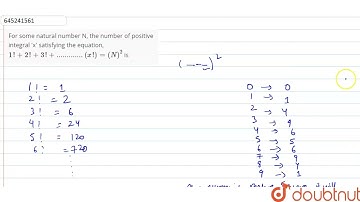 645241561
For some natural number N, the number of positive
integral 'x' satisfying the equation,
1! + 2! + 3! + ............. (x!) = (N)² is
( --- )²
1! = 1
2! = 2
3! = 6
4! = 24
5! = 120
6! = 720
0 → 0
1 → 1
2 → 4
3 → 9
4 → 6
5 → 5
6 → 6
7 → 9
8 → 4
9 → 1
doubtnut